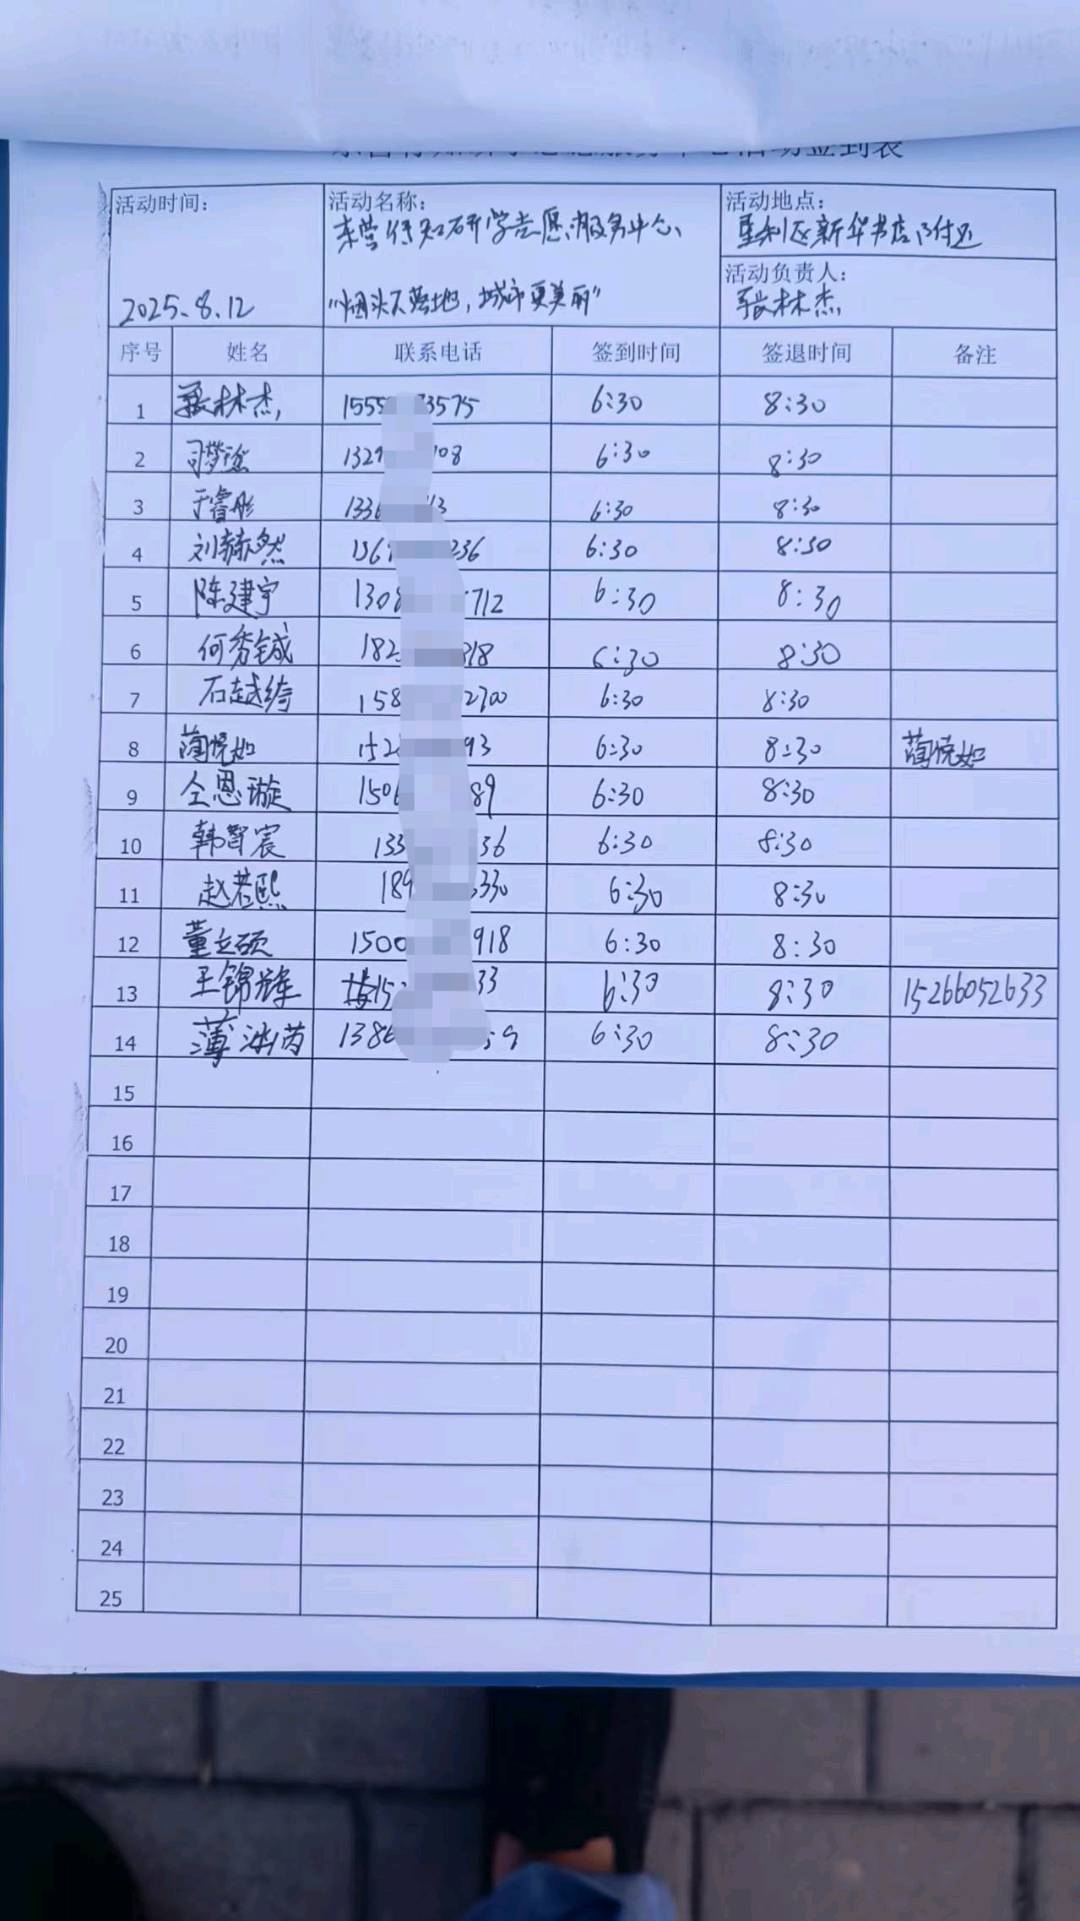 活动签到表
活动时间: 活动名称: 活动地点:
东营行知研学志愿服务中心 垦利区新华书店附近
活动负责人:
2025.8.12 "烟头不落地,城市更美丽" 张林杰
序号 姓名 联系电话 签到时间 签退时间 备注
1 张林杰 1555 3575 6:30 8:30
2 1329 08 6:30 8:30
3 于睿彤 1336 13 6:30 8:30
4 刘赫然 236 6:30 8:30
5 陈建宇 1308 712 6:30 8:30
6 何秀铖 182 818 6:30 8:30
7 石越绮 158 2700 6:30 8:30
8 蔺悦如 152 93 6:30 8:30 蔺悦如
9 仝恩璇 1506 89 6:30 8:30
10 韩智宸 133 36 6:30 8:30
11 赵若熙 189 330 6:30 8:30
12 董立硕 1500 918 6:30 8:30
13 王锦辉 15 33 6:30 8:30 15266052633
14 薄 1386 59 6:30 8:30
15
16
17
18
19
20
21
22
23
24
25